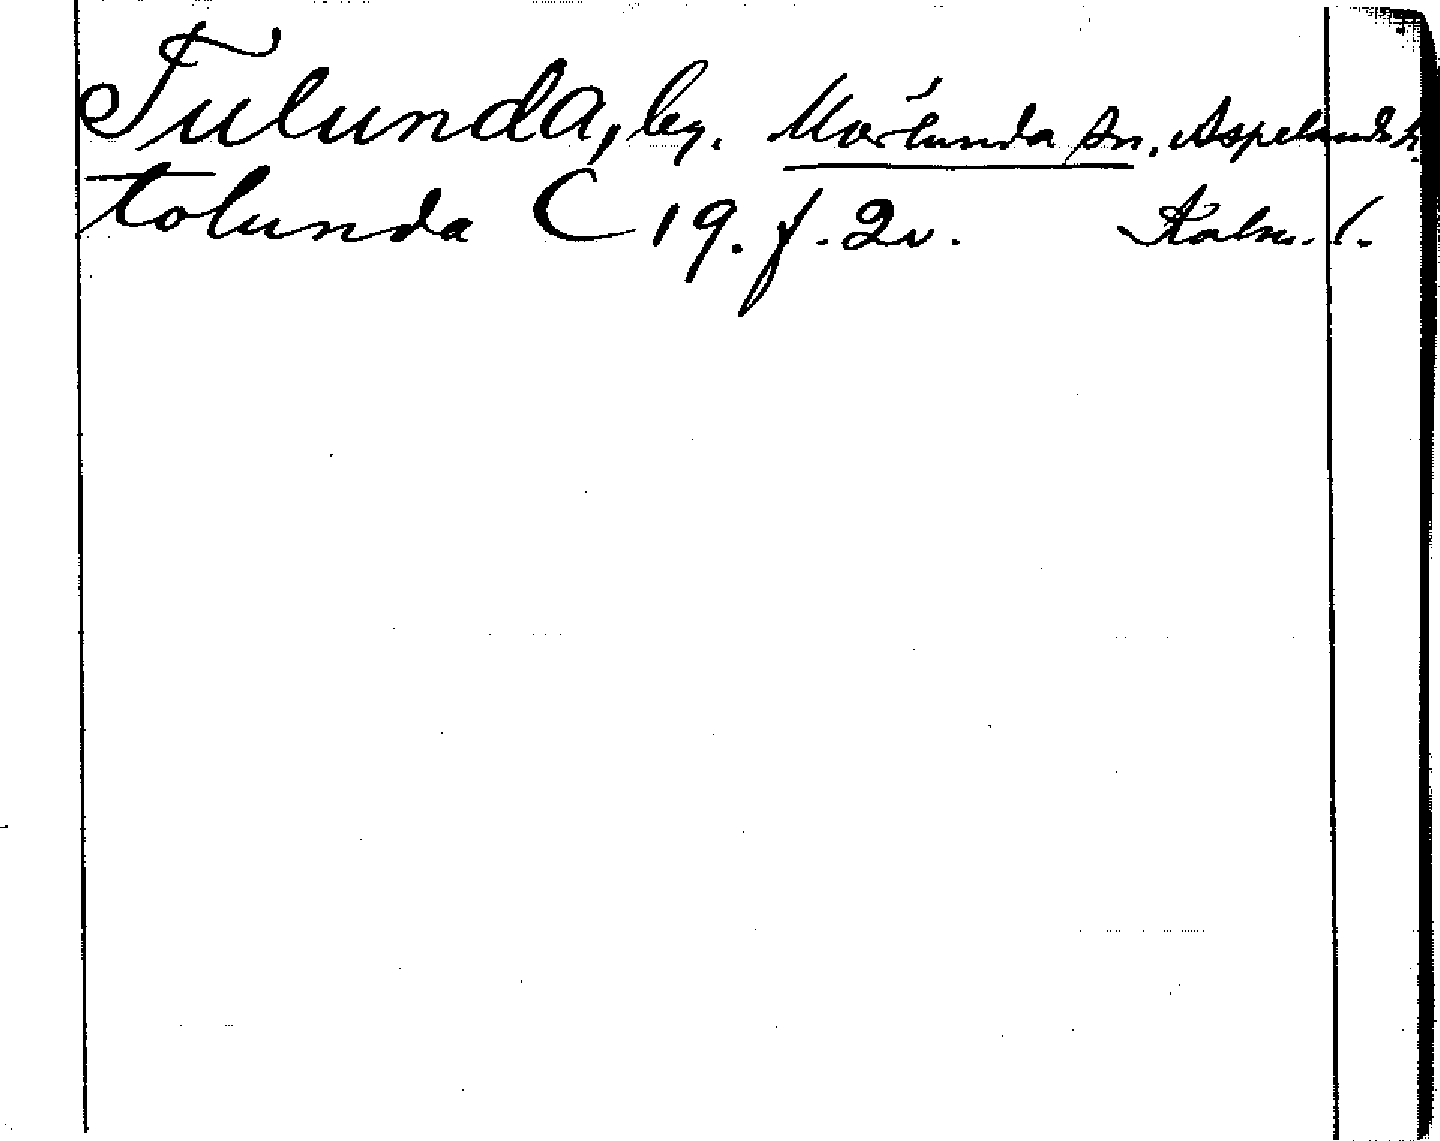 Tulunda, by. Mörlunda sn. Aspelands h.
tolunda C 19. f. 2v. Kalm. l.